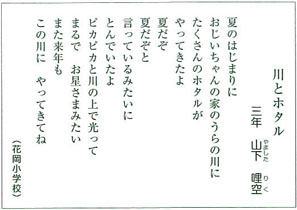 川とホタル
三年 山下 哩空
やました りく
夏のはじまりに
おじいちゃんの家のうらの川に
たくさんのホタルが
やってきたよ
夏だぞ
夏だぞと
言っているみたいに
とんでいたよ
ピカピカと川の上で光って
まるで お星さまみたい
また来年も
この川に やってきてね
（花岡小学校）